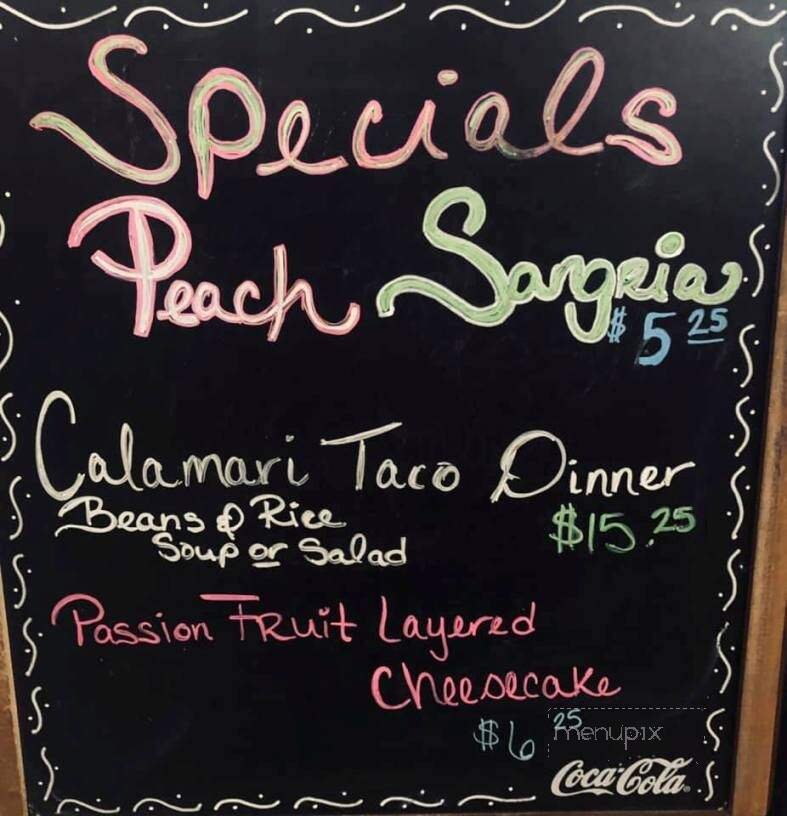 Specials
Peach Sangria
$5 25
Calamari Taco Dinner
Beans & Rice
Soup or Salad
$15.25
Passion Fruit Layered
Cheesecake
$6 25
menupix
Coca-Cola